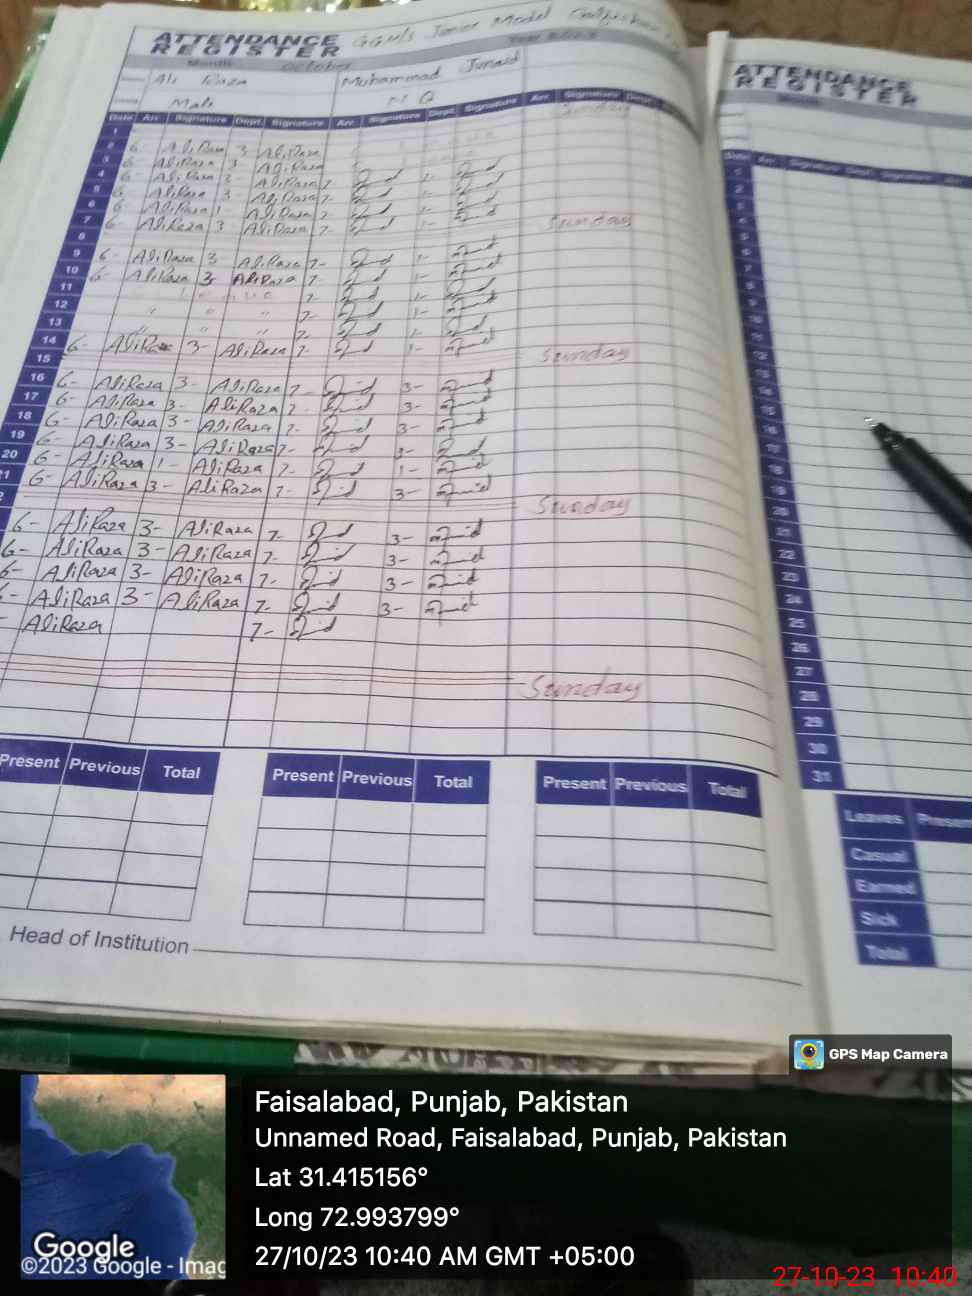 ATTENDANCE REGISTER GGHS Junior Model
Month October
Ali Raza Muhammad Junaid
Mali N Q
Date Arr. Signature Dept. Signature Arr. Signature Dept. Signature Arr. Signature Dept. Sunday
1
2 6- AliRaza 3 AliRaza
3 6- AliRaza 3- AliRaza
4 6- AliRaza 3- AliRaza 7- 1-
5 6- AliRaza 3- AliRaza 7- 1-
6 6- AliRaza 1- AliRaza 7- 1-
7 6- AliRaza 3 AliRaza 7- 1-
8 Sunday
9 6- AliRaza 3- AliRaza 7- 1-
10 6- AliRaza 3- AliRaza 7- 1-
11 7- 1-
12 " " " 7- 1-
13 " " " 7- 1-
14 6- AliRaza 3- AliRaza 7- 1-
15 Sunday
16 6- AliRaza 3- AliRaza 7- 3-
17 6- AliRaza 3- AliRaza 7- 3-
18 6- AliRaza 3- AliRaza 7- 3-
19 6- AliRaza 3- AliRaza 7- 3-
20 6- AliRaza 1- AliRaza 7- 1-
21 6- AliRaza 3- AliRaza 7- 3-
2 Sunday
6- AliRaza 3- AliRaza 7- 3-
6- AliRaza 3- AliRaza 7- 3-
6- AliRaza 3- AliRaza 7- 3-
6- AliRaza 3- AliRaza 7- 3-
- AliRaza 7-
Sunday
Present Previous Total Present Previous Total Present Previous Total
Head of Institution
ATTENDANCE REGISTER
Month
Date Arr. Signature Dept. Signature Arr.
1
2
3
4
5
6
7
8
9
10
11
12
13
14
15
16
17
18
19
20
21
22
23
24
25
26
27
28
29
30
31
Leaves Present
Casual
Earned
Sick
Total
GPS Map Camera
Faisalabad, Punjab, Pakistan
Unnamed Road, Faisalabad, Punjab, Pakistan
Lat 31.415156°
Long 72.993799°
27/10/23 10:40 AM GMT +05:00
Google
©2023 Google - Imag
27-10-23 10:40